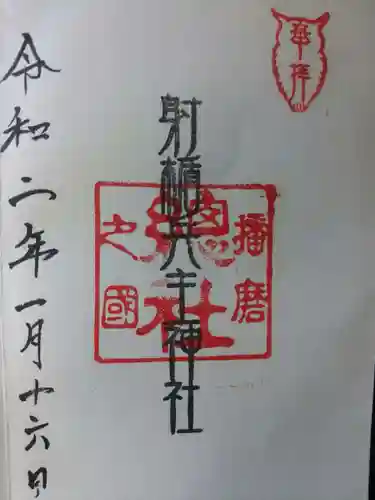 奉拝
射楯兵主神社
播磨
総社
之國
令和二年一月十六日